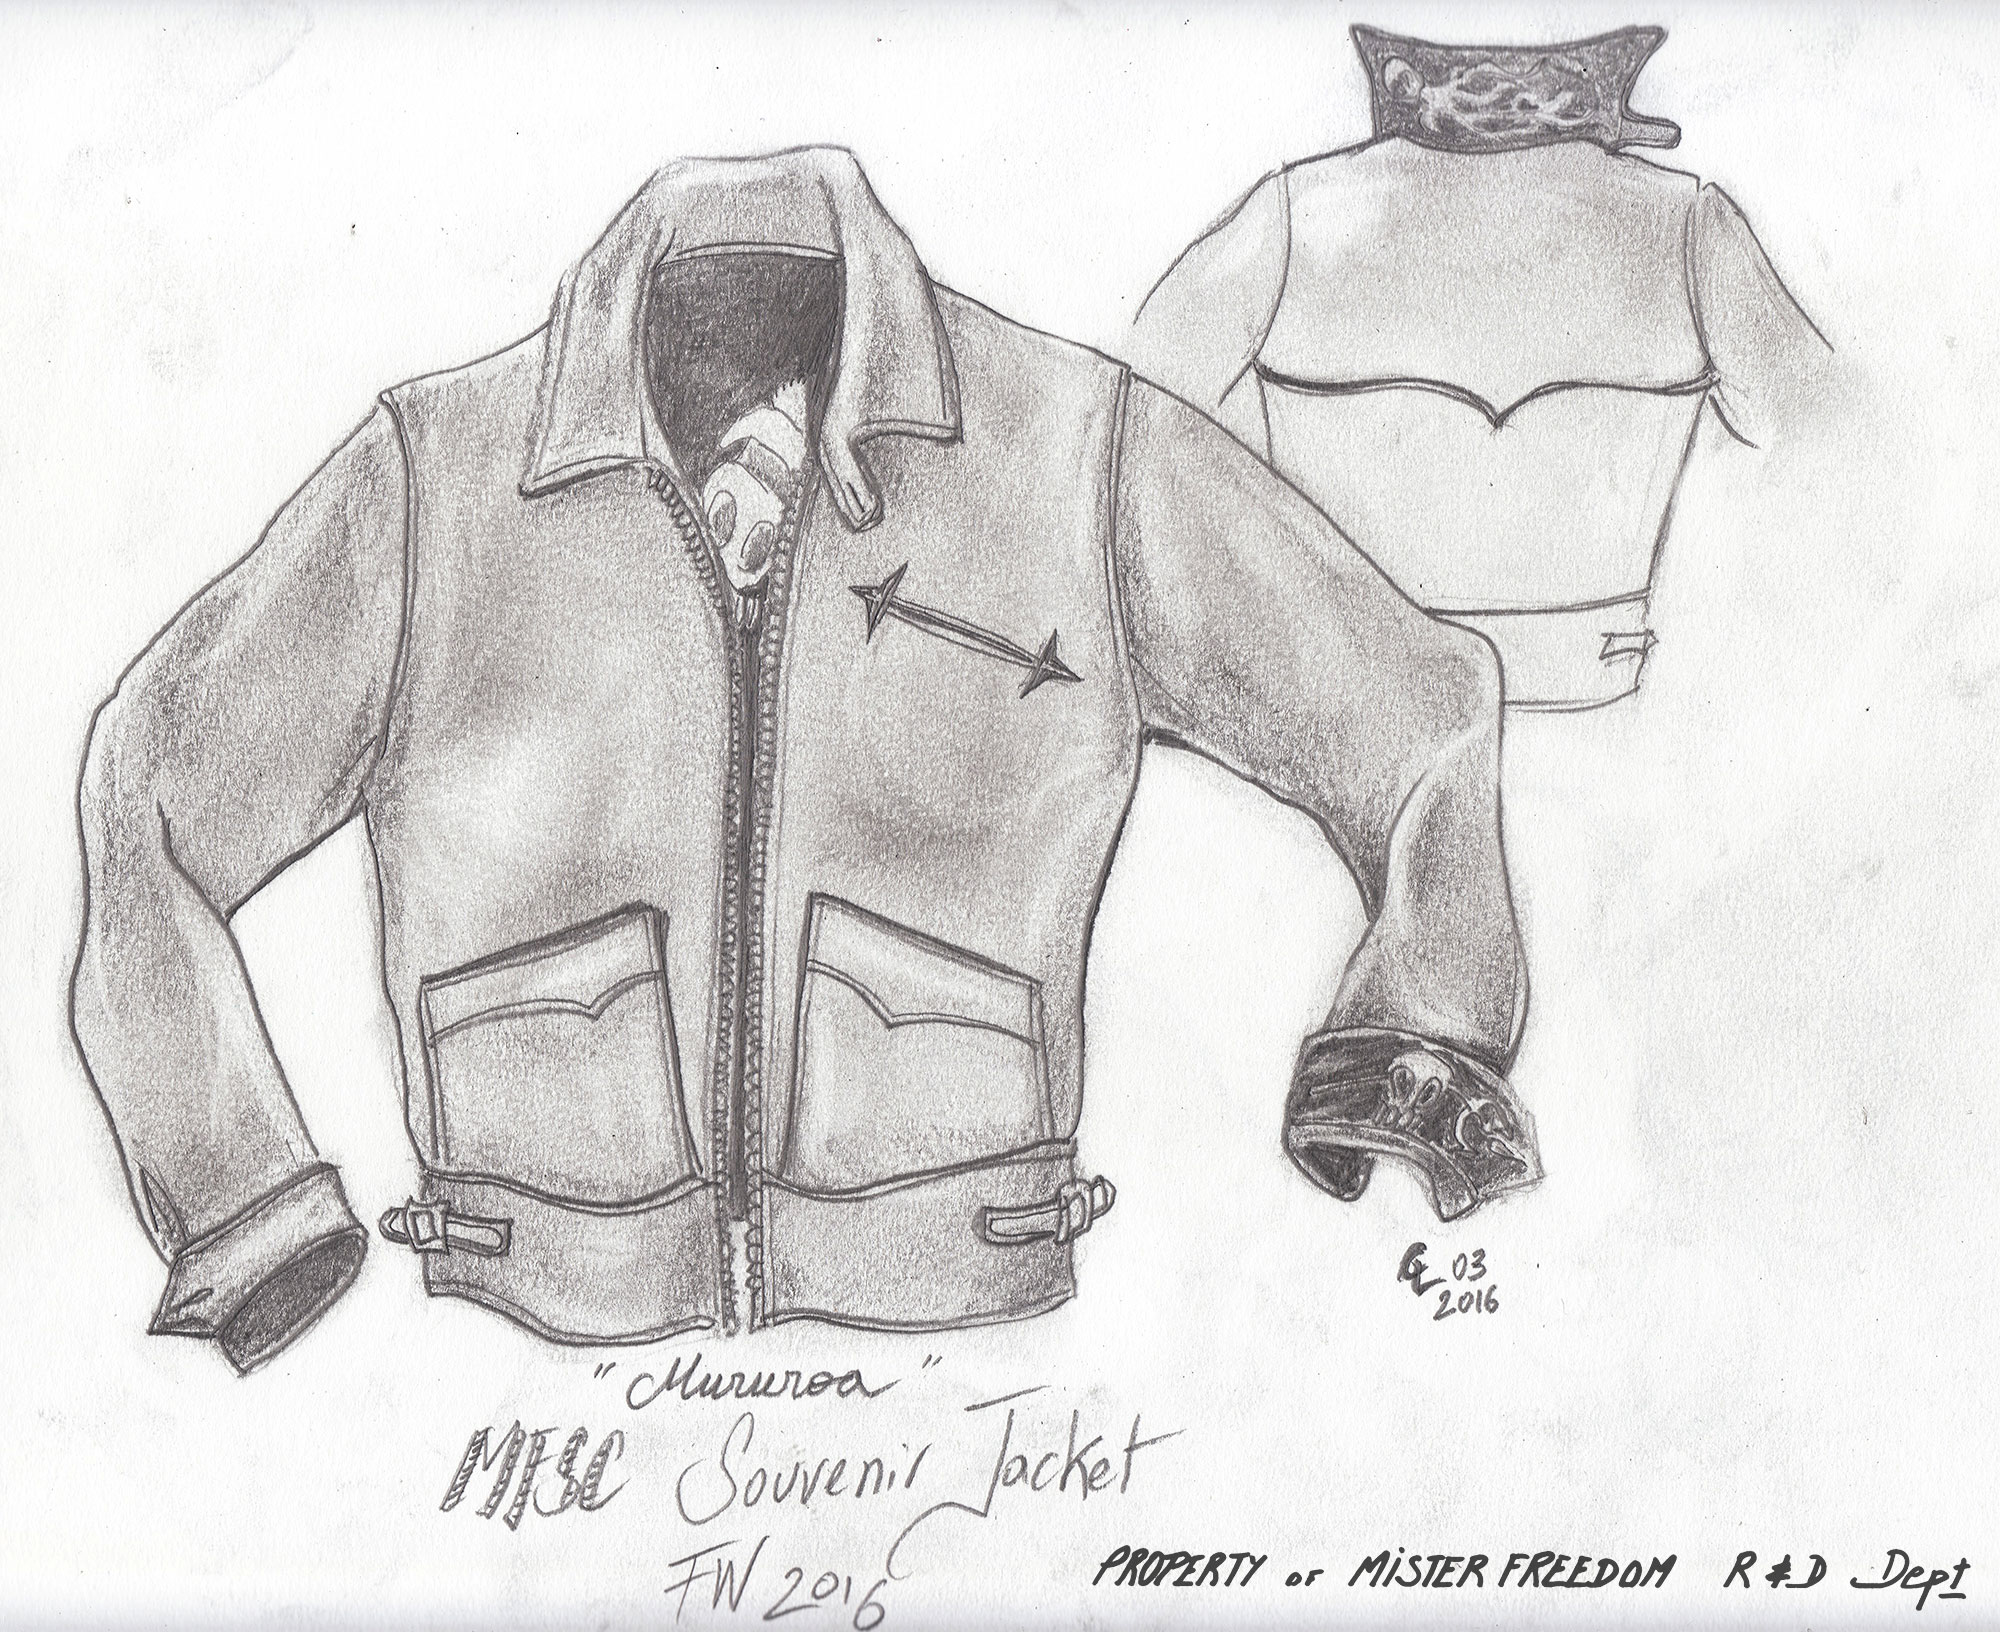 CL 03
2016
"Mururoa"
MFSC Souvenir Jacket
FW 2016
PROPERTY OF MISTER FREEDOM R & D Dept